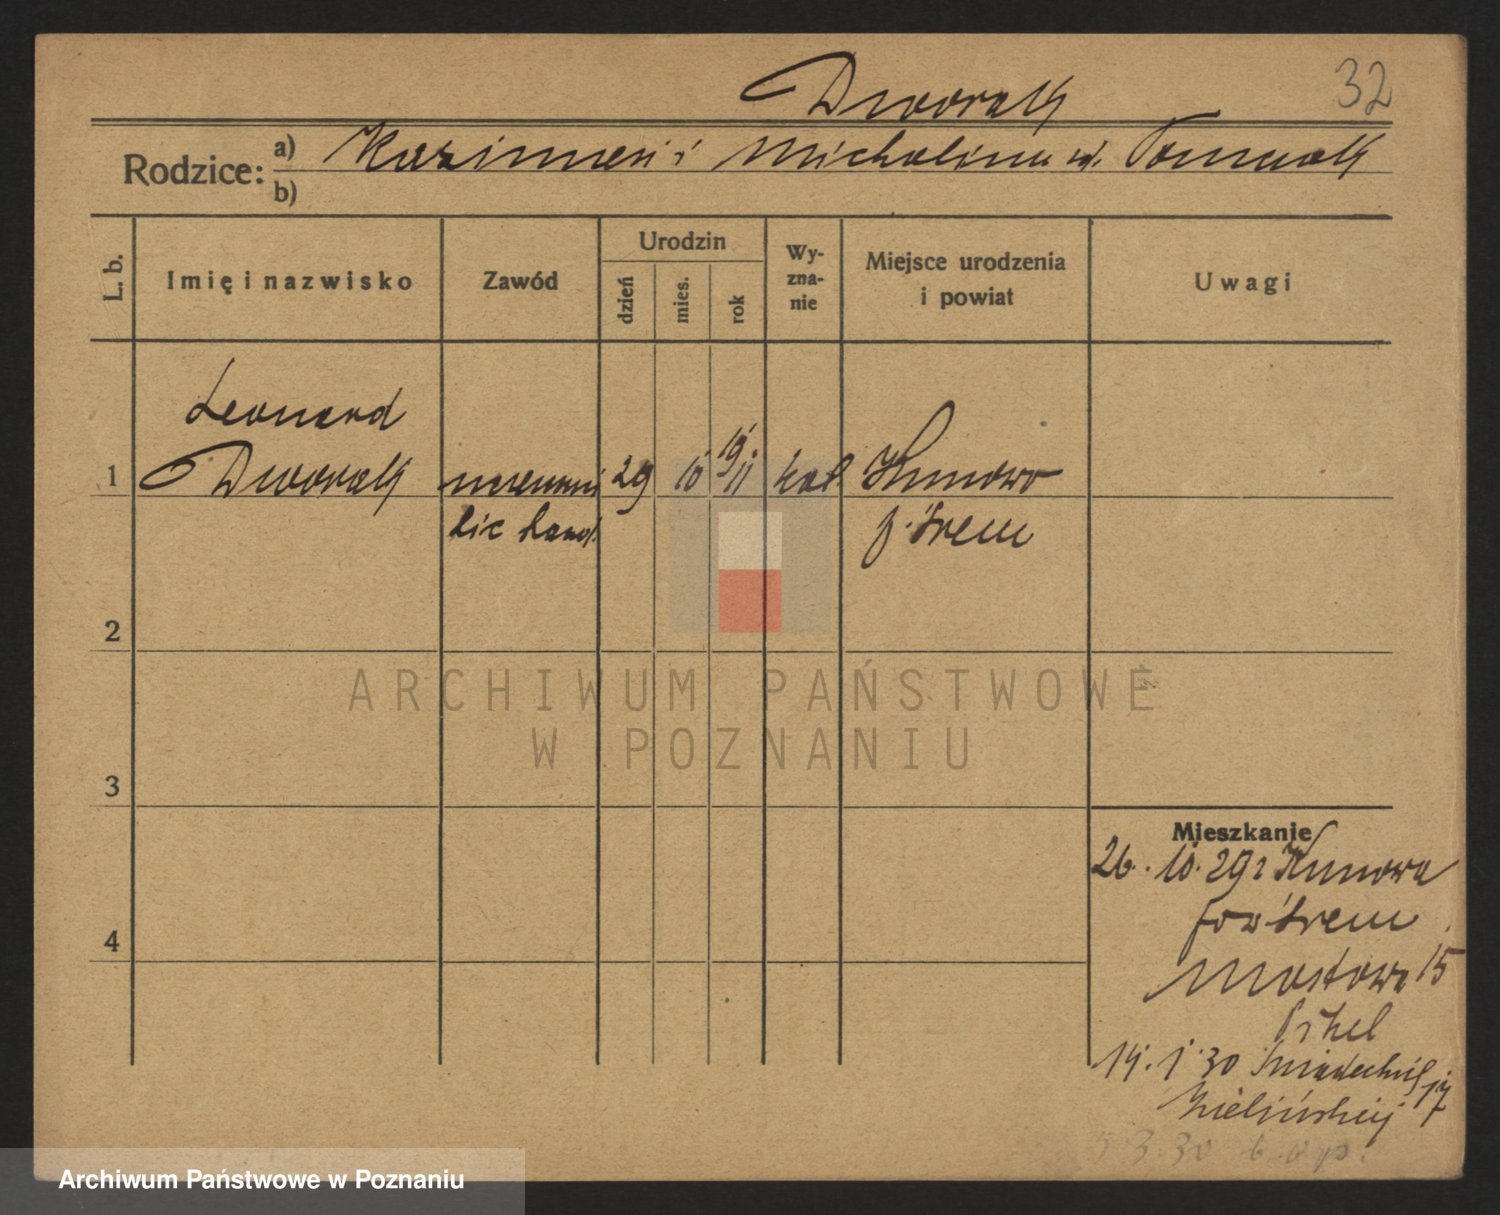 Dworak
32
Rodzice:
a) Kazimierz i Michalina
b)
L. b.
Imię i nazwisko
Zawód
Urodzin
dzień
mies.
rok
Wy-
zna-
nie
Miejsce urodzenia
i powiat
Uwagi
Leonard
1 Dworak 29 10 19 11 kat Kunowo
p. Śrem
2
3
4
Mieszkanie
26. 10. 29 z Kunowa
pow Śrem
Mostowa 15
14. 1. 30 17
Zielińskiej
5 3. 30
ARCHIWUM PAŃSTWOWE
W POZNANIU
Archiwum Państwowe w Poznaniu